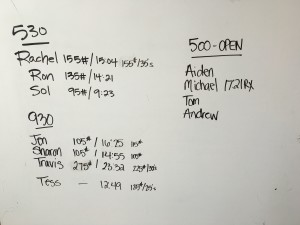 530
Rachel 155#/15:04 155#/35's
Ron 135#/14:21
Sol 95#/9:23
930
Jon 105#/16:25 115#
Sharon 105#/14:55 100#
Travis 275#/23:32
Tess — 12:49
500-OPEN
Aiden
Michael 17:21RX
Tom
Andrew